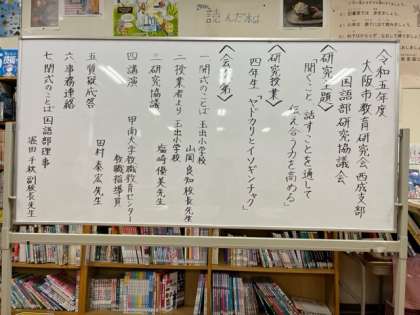 読んだ本は
〈令和五年度
大阪市教育研究会 西成支部
国語部研究協議会
〈研究主題〉
「聞くこと・話すことを通して
伝え合う力を高める」
〈研究授業〉
四年生「ヤドカリとイソギンチャク」
〈会次第〉
一 開式のことば 玉出小学校
山岡 良知校長先生
二 授業者より 玉出小学校
塩崎 優美先生
三 研究協議
四 講演 甲南大学教職教育センター
教職指導員
田村 泰宏先生
五 質疑応答
六 事務連絡
七 閉式のことば 国語部理事
濱田 千秋副校長先生